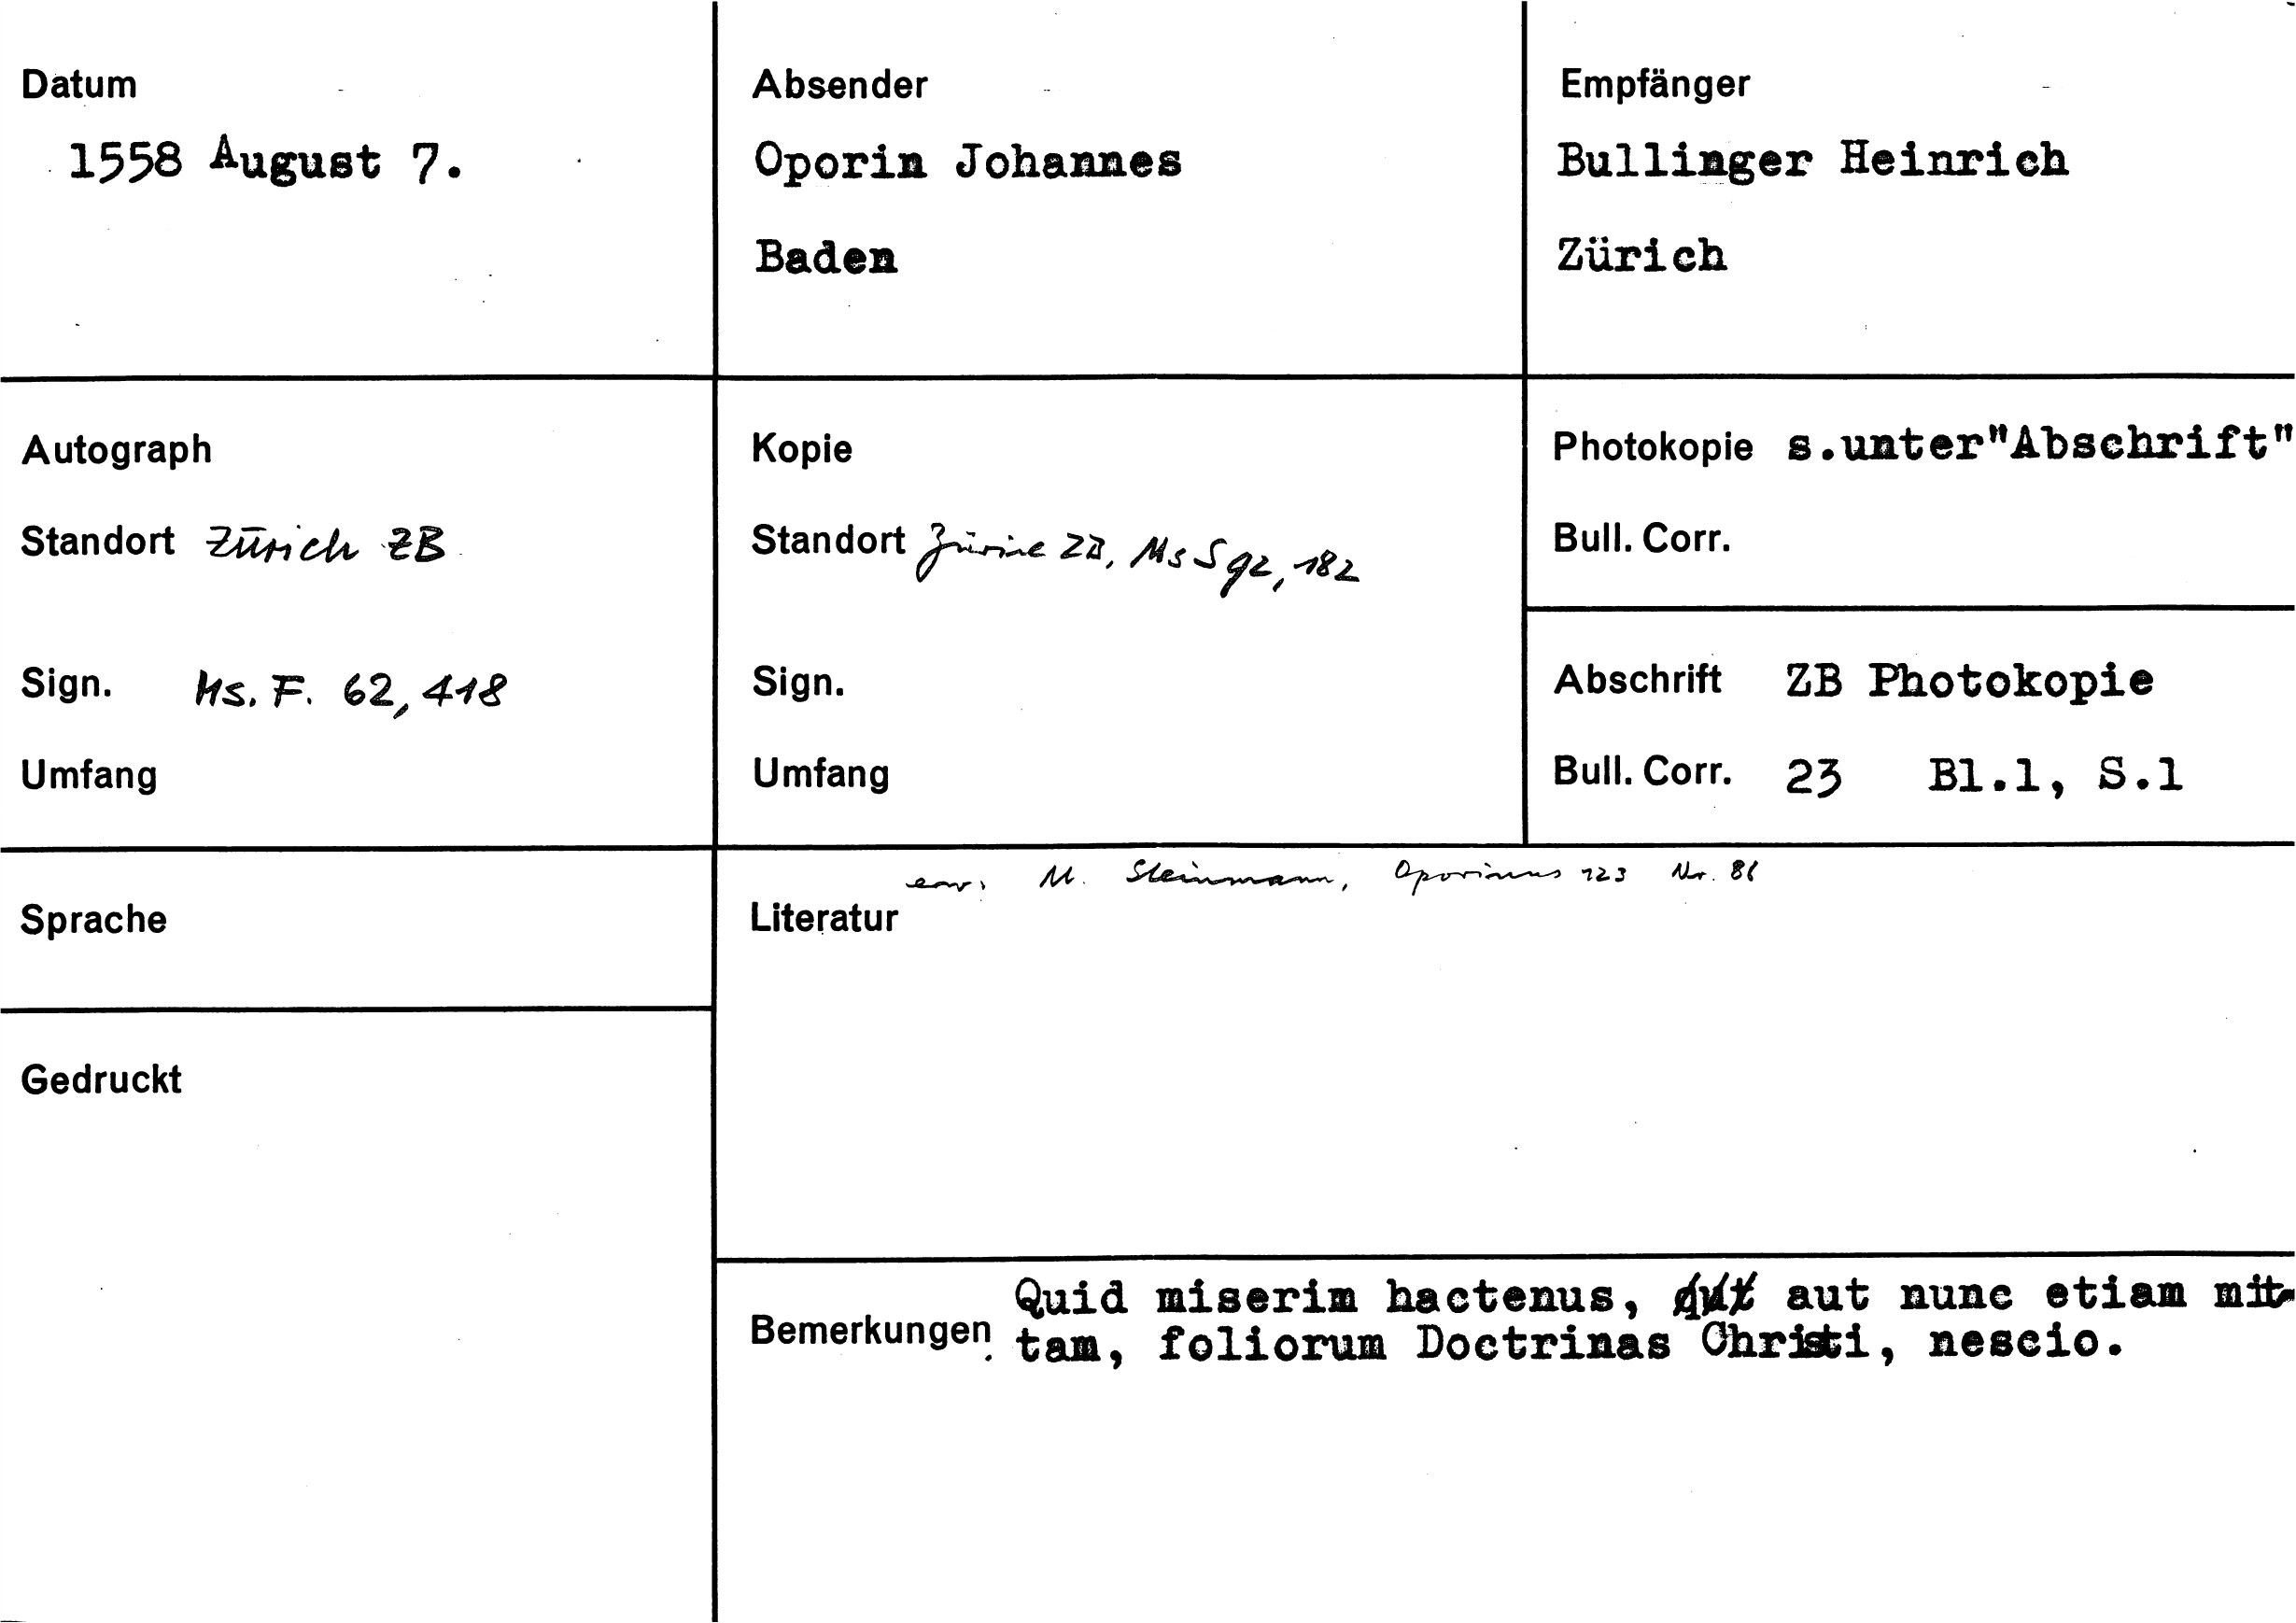 Datum
1558 August 7.
Absender
Oporin Johannes
Baden
Empfänger
Bullinger Heinrich
Zürich
Autograph
Standort Zürich ZB
Sign. Ms. F. 62, 418
Umfang
Kopie
Standort Zürich ZB, Ms S 92, 182
Sign.
Umfang
Photokopie s.unter"Abschrift"
Bull. Corr.
Abschrift ZB Photokopie
Bull. Corr. 23 Bl.1, S.1
Sprache
Gedruckt
M. Steinmann, Oporinus 123 Nr. 86
Literatur
Quid miserim hactenus, aut nunc etiam mit-
Bemerkungen tam, foliorum Doctrinas Christi, nescio.